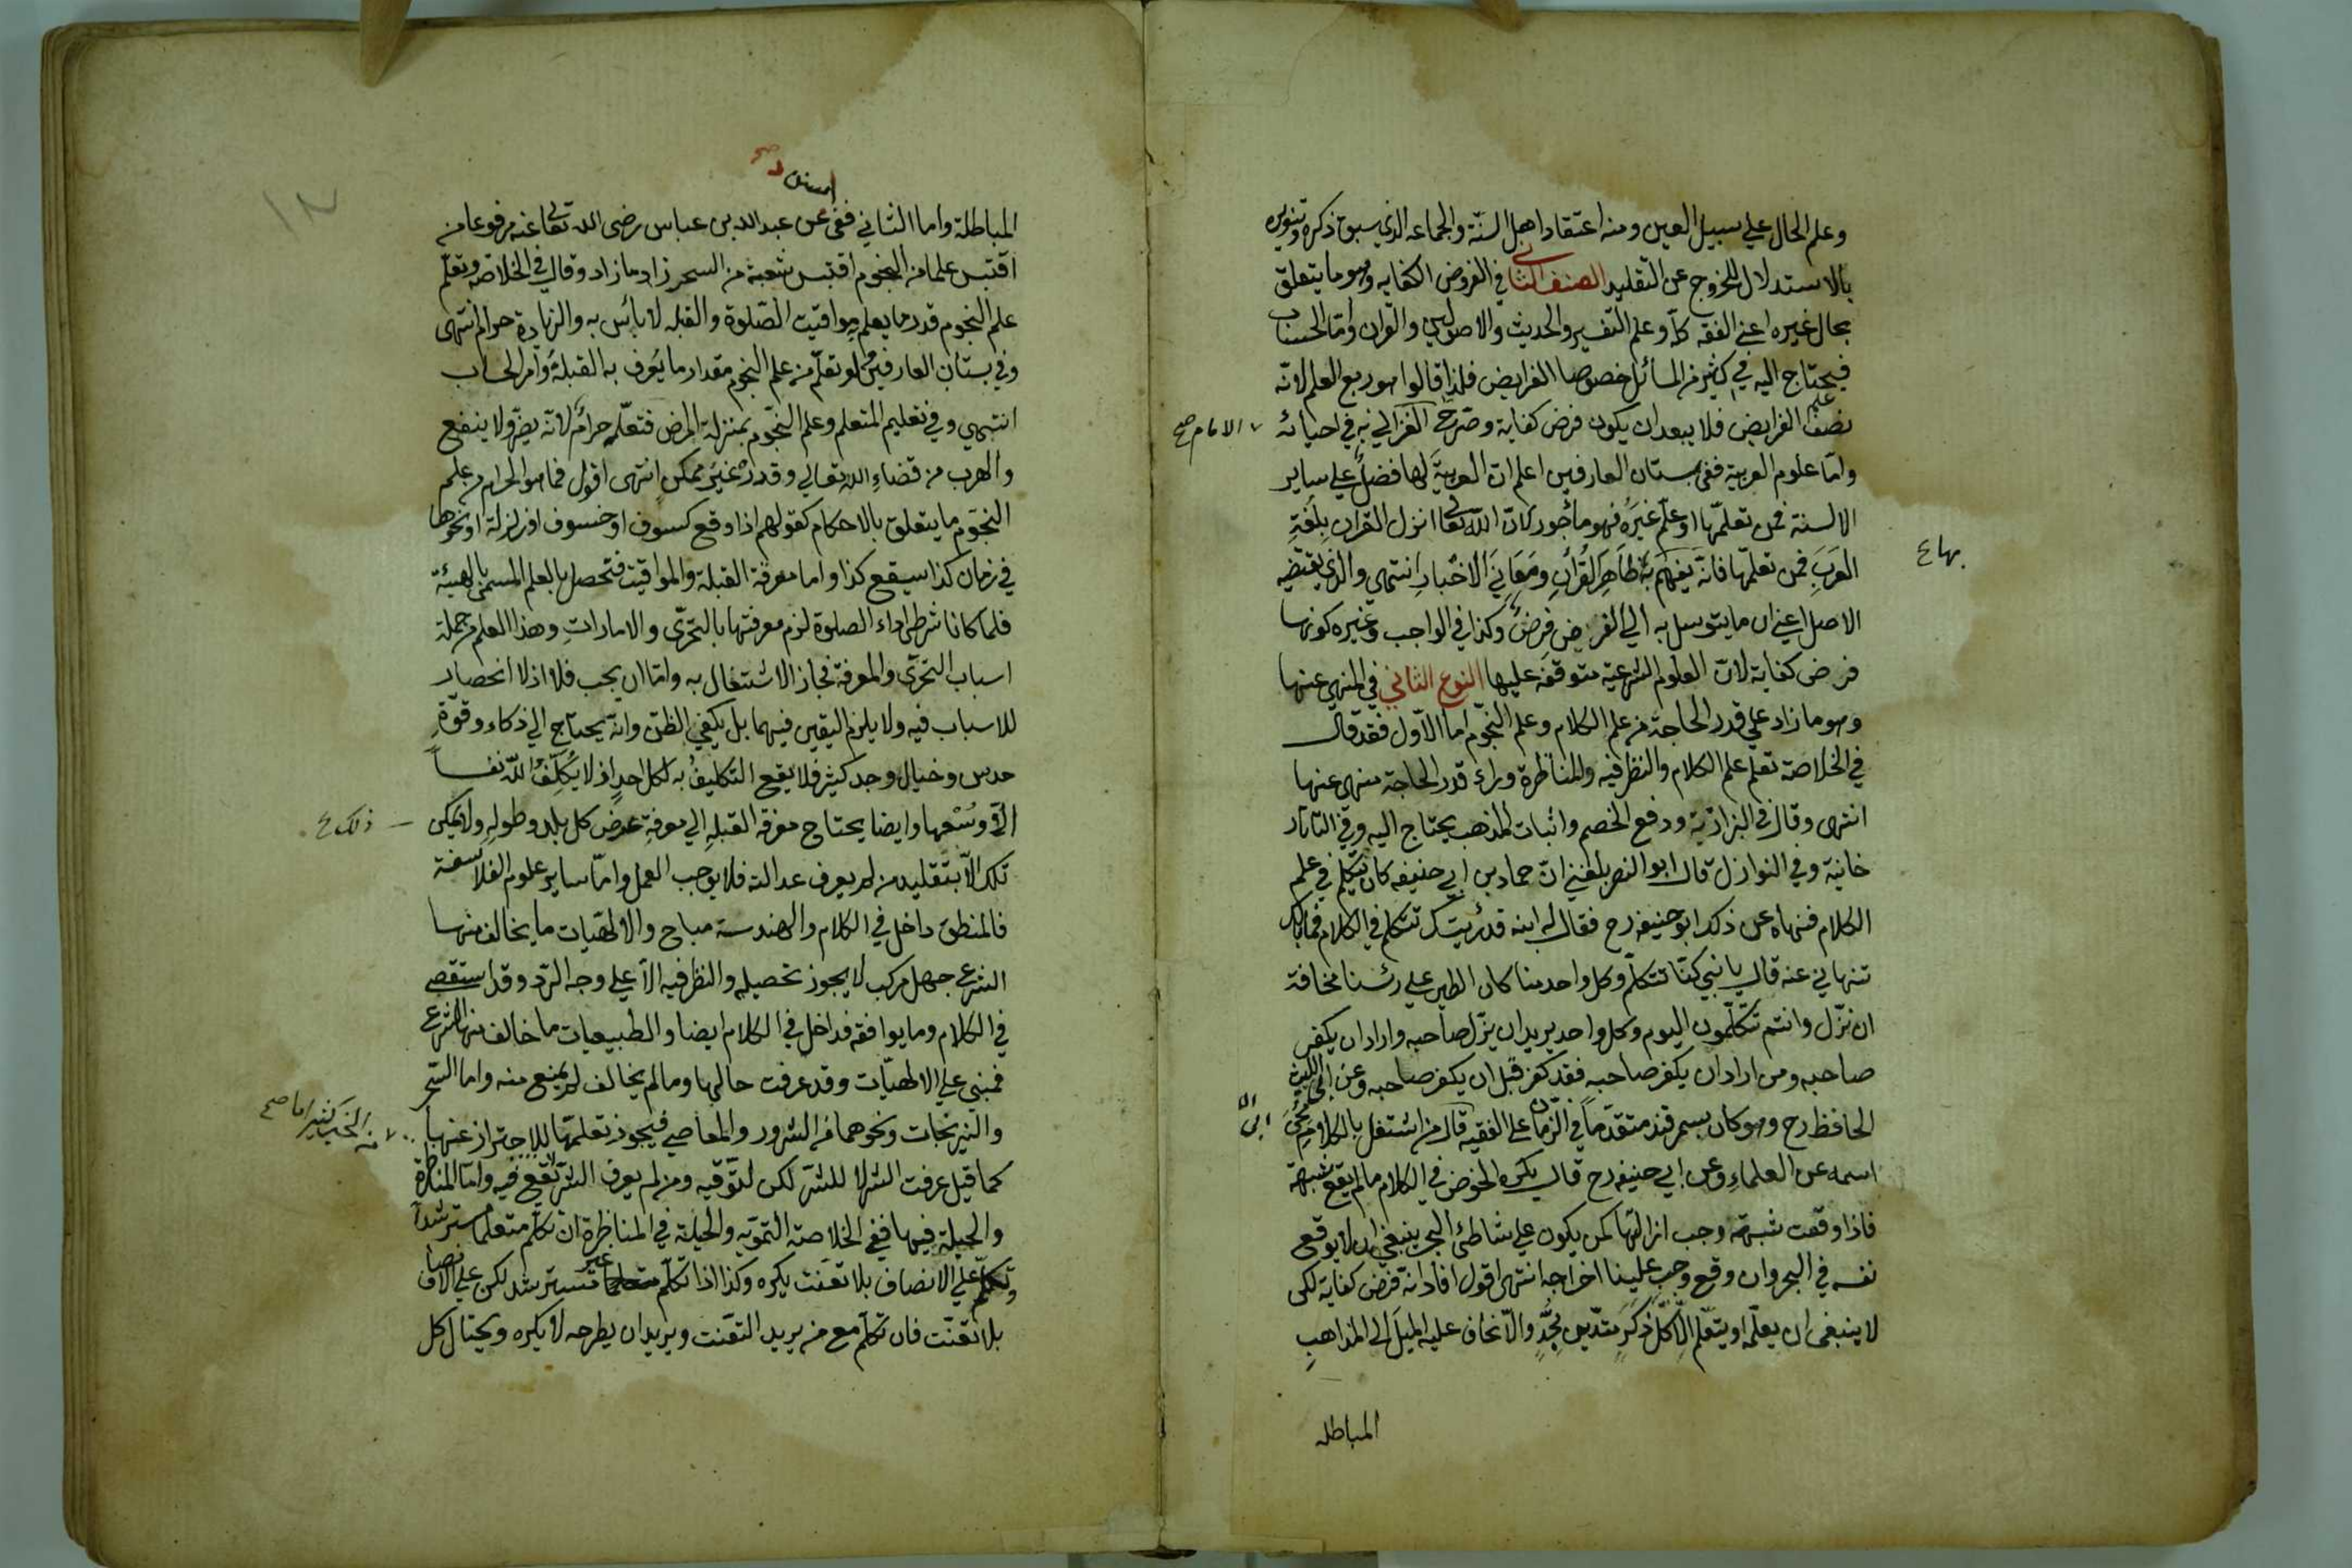 وعلم الحال على سبيل العين ومنه اعتقاد اهل السنة والجماعه الذي سبق ذكره وتنويره
بالاستدلال للخروج عن التقليد الصنف الثاني في الفروض الكفايه وهو ما يتعلق
بحال غيره اعني الفقه كله وعلم التفسير والحديث والاصولين والقران واما الحساب
فيحتاج اليه في كثير من المسائل خصوصا الفرايض فلذا قالوا هو ربع العلم لانه
نصف علم الفرايض فلا يبعد ان يكون فرض كفاية وصرح الغزالي به في احيائه
الامام صح
واما علوم العربية ففي بستان العارفين اعلم ان العربية لها فضل على ساير
الالسنة فمن تعلمها او علم غيره فهو مأجور لان الله تعالى انزل القران بلغة
العرب فمن تعلمها فانه يفهم بها ظاهر القرآن ومعاني الاخبار انتهى والذي يقتضيه
بها ع
الاصل اعني ان ما يتوسل به الي الفرض فرض وكذا في الواجب وغيره كونها
فرض كفاية لان العلوم الشرعية متوقفة عليها النوع الثاني في المنهي عنها
وهو ما زاد على قدر الحاجة من علم الكلام وعلم النجوم اما الاول فقد قال
في الخلاصة تعلم علم الكلام والنظر فيه والمناظرة وراء قدر الحاجة منهى عنها
انتهى وقال في البزازية ودفع الخصم واثبات المذهب يحتاج اليه وفي التاتار
خانية وفي النوازل قال ابو النصر بلغني ان حماد بن ابي حنيفه كان يتكلم في علم
الكلام فنهاه عن ذلك ابو حنيفه رح فقال له ابنه قد رئيتك تتكلم في الكلام فما بالك
تنهاني عنه قال يا بني كنا نتكلم وكل واحد منا كان الطير على رئسنا مخافة
ان نزل وانتم تتكلمون اليوم وكل واحد يريد ان يزل صاحبه واراد ان يكفر
صاحبه ومن اراد ان يكفر صاحبه فقد كفر قبل ان يكفر صاحبه وعن ابي الليث
الحافظ رح وهو كان بسمرقند متقدما في الزمان على الفقيه قال من اشتغل بالكلام محي
اسمه عن العلماء وعن ابي حنيفه رح قال يكره الخوض في الكلام ما لم يقع شبهة
فاذا وقعت شبهة وجب ازالتها كمن يكون على شاطئ البحر ينبغي ان لا يوقع
نفسه في البحر وان وقع وجب علينا اخراجه انتهى اقول افاد انه فرض كفاية لكن
لا ينبغي ان يعلمه او يتعلم الا كل ذكر متدين مجد والا نخاف عليه الميل الى المذاهب
المباطله
المباطلة واما الثاني ففي عن عبد الله بن عباس رضى الله تعالى عنه مرفوعا من
اقتبس علما من النجوم اقتبس شعبة من السحر زاد ما زاد وقال في الخلاصه وتعلم
علم النجوم قدر ما يعلم مواقيت الصلوة والقبله لا بائس به والزيادة حرام انتهى
وفي بستان العارفين لو تعلم من علم النجوم مقدار ما يعرف به القبلة وامر الحساب
انتهى وفي تعليم المتعلم وعلم النجوم بمنزلة المرض فتعلمه حرام لانه يضر ولا ينفع
والهرب من قضاء الله تعالى وقدره غير ممكن انتهى اقول فما هو الحرام من علم
النجوم ما يتعلق بالاحكام كقولهم اذا وقع كسوف او خسوف او زلزلة او نحوها
في زمان كذا سيقع كذا واما معرفة القبلة والمواقيت فتحصل بالعلم المسمى بالهيئة
فلما كانا شرط لاداء الصلوة لزم معرفتها بالتحرى والامارات وهذا العلم من جملة
اسباب التحرى والمعرفة فجاز الاشتغال به واما ان يجب فلا اذ لا انحصار
للاسباب فيه ولا يلزم اليقين فيهما بل يكفي الظن وانه يحتاج الي ذكاء وقوة
حدس وخيال وجد كثير فلا يقع التكليف به لكل احد اذ لا يكلف الله نفسا
الا وسعها وايضا يحتاج معرفة القبلة الي معرفة عرض كل بلد وطوله ولا يمكن
ذلك ع
تلك الا بتقليد من لم يعرف عدالته فلا يوجب العمل واما ساير علوم الفلاسفة
فالمنطق داخل في الكلام والهندسة مباح والالهيات ما يخالف منها
الشرع جهل مركب لا يجوز تحصيله والنظر فيه الا على وجه الرد وقد استقصى
في الكلام وما يوافقه فداخل في الكلام ايضا والطبيعيات ما خالف منها الشرع
فمبنى على الالهيات وقد عرفت حالها وما لم يخالف لم يمنع منه واما السحر
والنيرنجات ونحوهما من الشرور والمعاصي فيجوز تعلمها للاحتراز عنها
كما قيل عرفت الشر لا للشر لكن لتوقيه ومن لم يعرف الشر يقع فيه واما المناظرة
والحيلة فيها ففي الخلاصة التمويه والحيلة في المناظرة ان تكلم متعلما مسترشدا
وتكلم على الانصاف بلا تعنت يكره وكذا اذا تكلم غير مسترشد لكن على الانصاف
بلا تعنت فان تكلم مع من يريد التعنت ويريد ان يطرحه لا يكره ويحتال كل